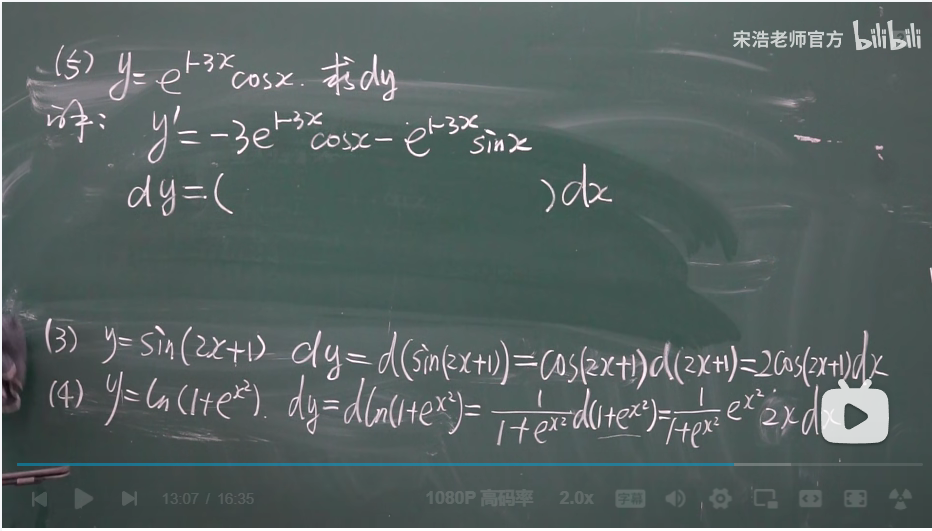 宋浩老师官方 bilibili
(5) y=e^{1-3x}cosx. 求dy
y'=-3e^{1-3x}cosx-e^{1-3x}sinx
dy=( )dx
(3) y=sin(2x+1) dy=d(sin(2x+1))=cos(2x+1)d(2x+1)=2cos(2x+1)dx
(4) y=ln(1+e^{x^2}). dy=dln(1+e^{x^2})=\frac{1}{1+e^{x^2}}d(1+e^{x^2})=\frac{1}{1+e^{x^2}}e^{x^2}2xdx
13:07 / 16:35 1080P 高码率 2.0x 字幕